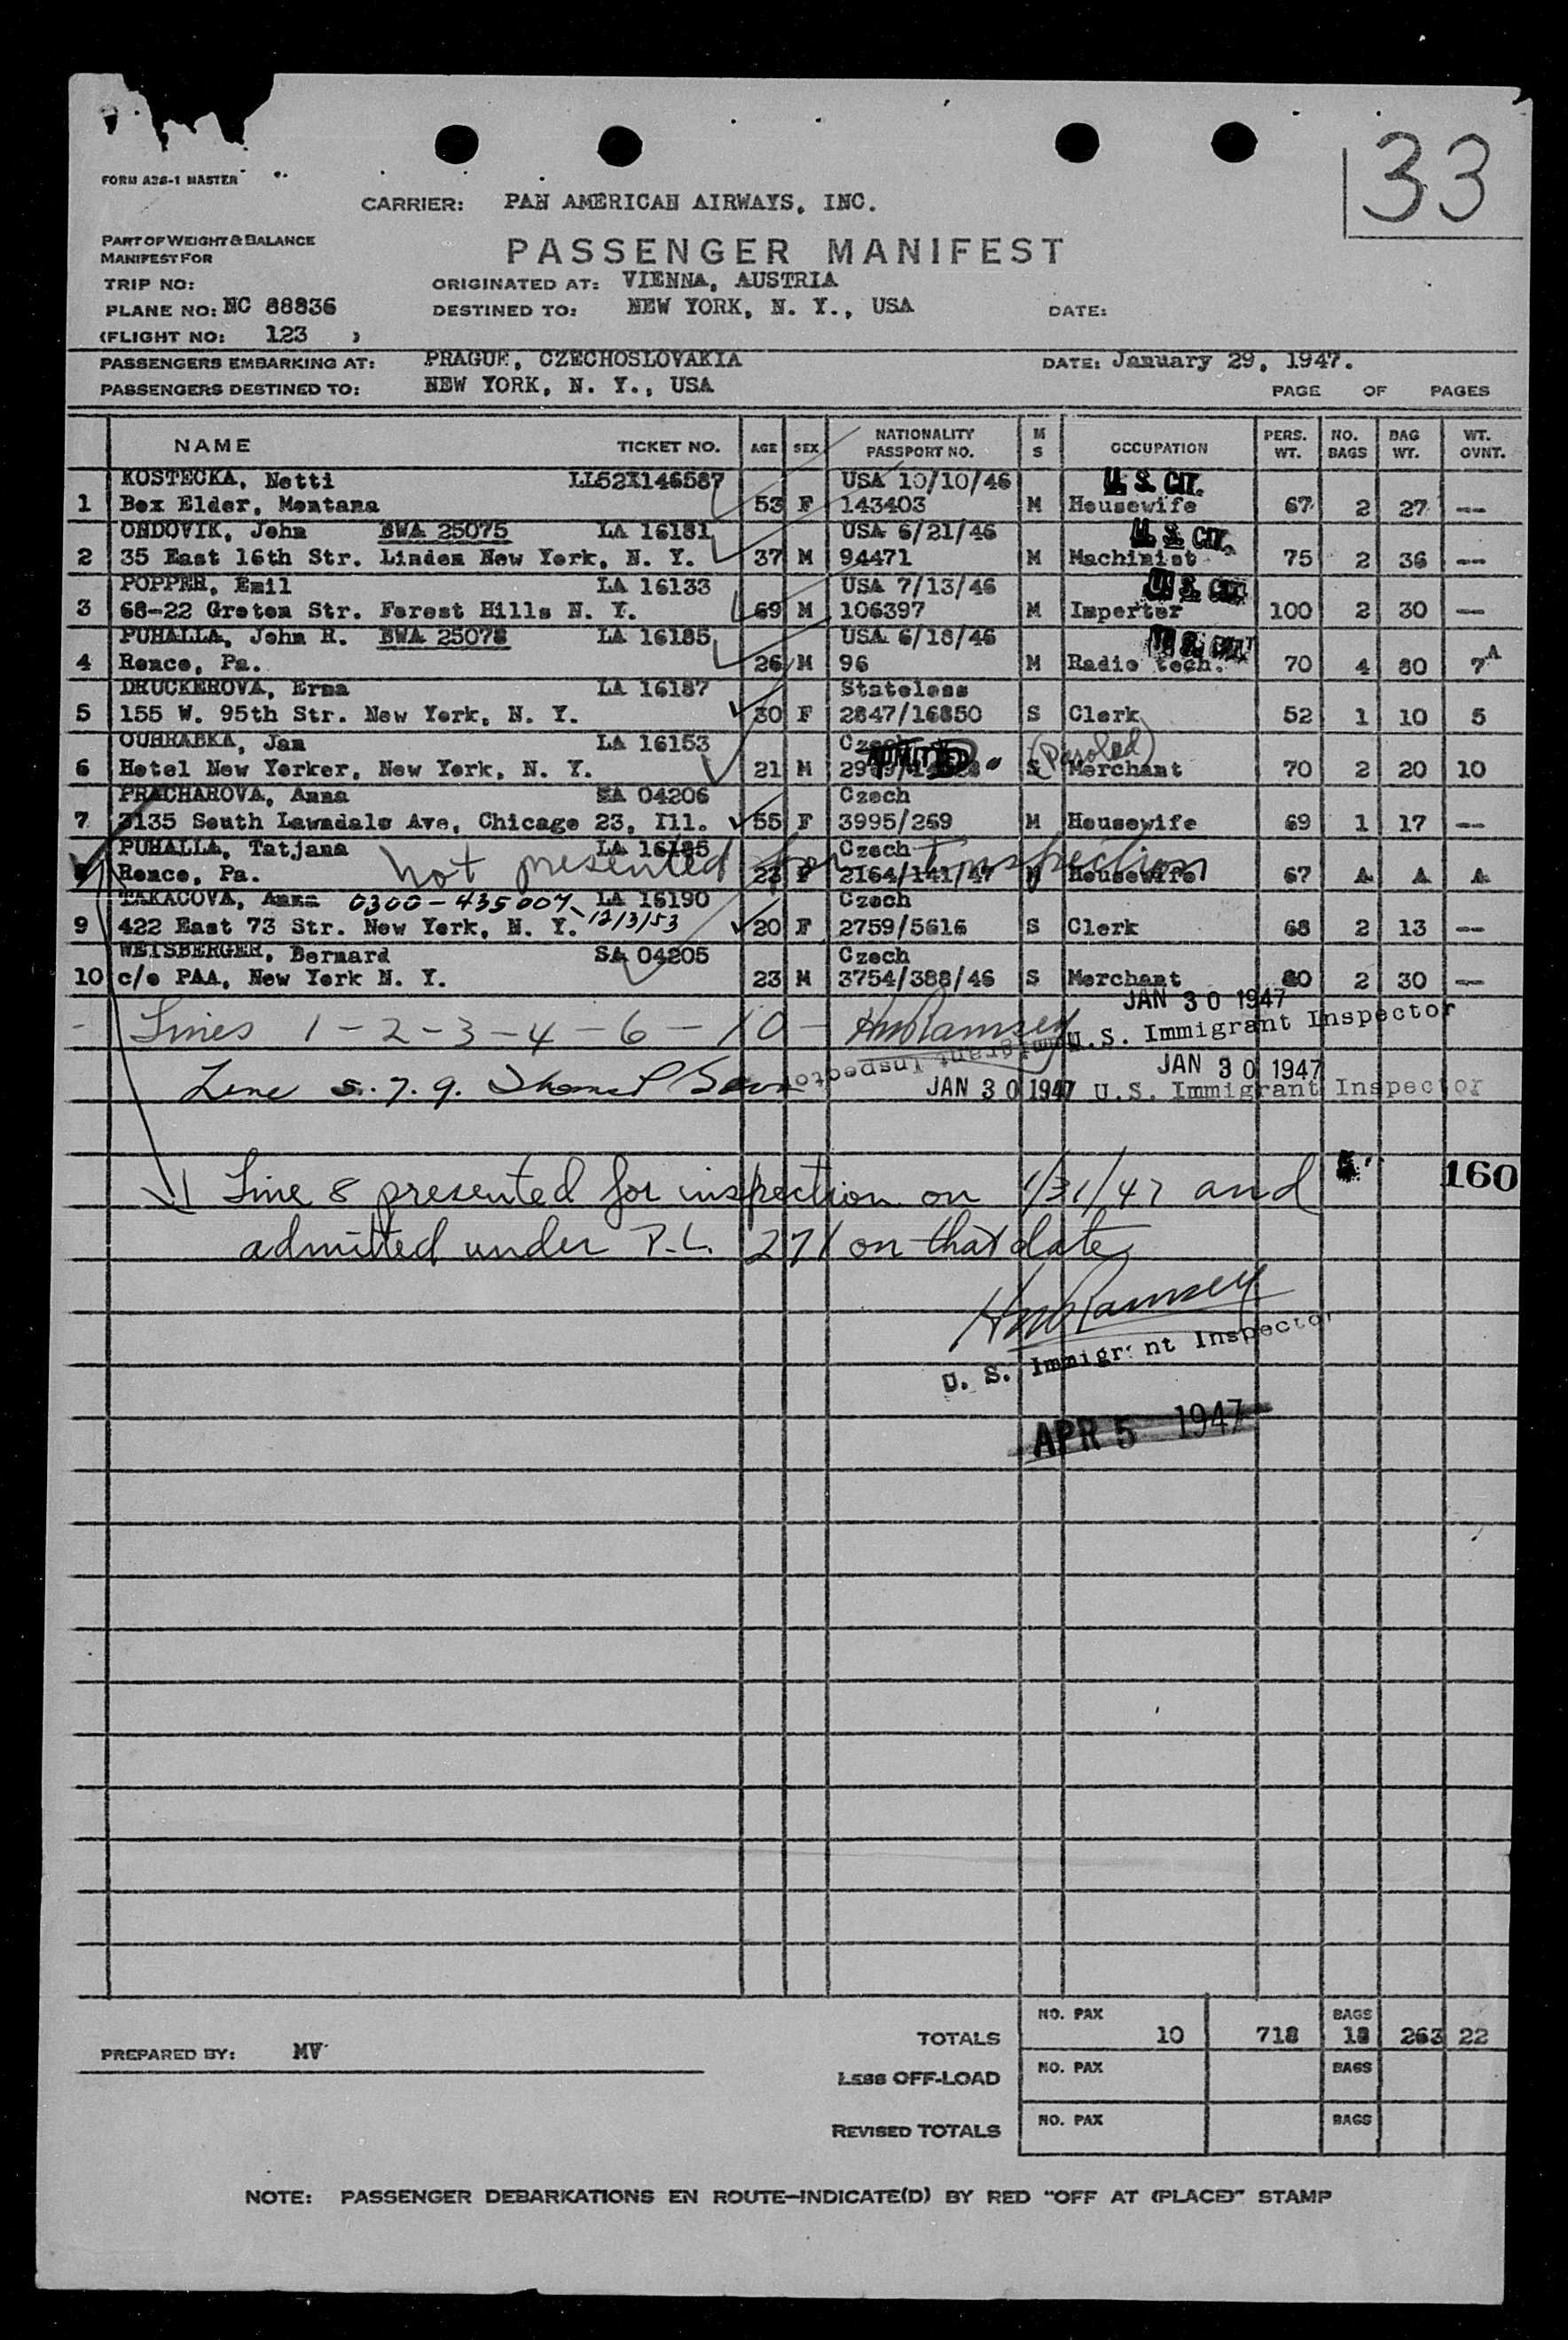 33
FORM A38-1 MASTER
CARRIER: PAN AMERICAN AIRWAYS, INC.
PART OF WEIGHT & BALANCE
MANIFEST FOR
PASSENGER MANIFEST
TRIP NO:
ORIGINATED AT: VIENNA, AUSTRIA
PLANE NO: NC 88836
DESTINED TO: NEW YORK, N. Y., USA
DATE:
(FLIGHT NO: 123 )
PASSENGERS EMBARKING AT: PRAGUE, CZECHOSLOVAKIA DATE: January 29, 1947.
PASSENGERS DESTINED TO: NEW YORK, N. Y., USA PAGE OF PAGES
NAME TICKET NO. AGE SEX NATIONALITY PASSPORT NO. M S OCCUPATION PERS. WT. NO. BAGS BAG WT. WT. OVNT.
KOSTECKA, Netti LL52X146587 USA 10/10/46 U. S. CIT.
1 Box Elder, Montana 53 F 143403 M Housewife 67 2 27 --
ONDOVIK, John BWA 25075 LA 16181 USA 6/21/46 U. S. CIT.
2 35 East 16th Str. Linden New York, N. Y. 37 M 94471 M Machinist 75 2 36 --
POPPER, Emil LA 16133 USA 7/13/46 U. S. CIT.
3 68-22 Groton Str. Forest Hills N. Y. 69 M 106397 M Importer 100 2 30 --
PUHALLA, John R. BWA 25078 LA 16185 USA 6/18/46 U. S. CIT.
4 Renco, Pa. 26 M 96 M Radio tech. 70 4 80 7 A
DRUCKEROVA, Erna LA 16187 Stateless
5 155 W. 95th Str. New York, N. Y. 30 F 2847/16850 S Clerk 52 1 10 5
OUHRABKA, Jan LA 16153 Czech ADMITTED (Paroled)
6 Hotel New Yorker, New York, N. Y. 21 M S Merchant 70 2 20 10
PRACHAROVA, Anna SA 04206 Czech
7 3135 South Lawndale Ave, Chicago 23, Ill. 55 F 3995/269 M Housewife 69 1 17 --
PUHALLA, Tatjana LA 16185 Czech
not presented for inspection
Renco, Pa. 23 F 2164/141/47 M Housewife 67 A A A
TAKACOVA, Anna 0300-435007 LA 16190 Czech
12/3/53
9 422 East 73 Str. New York, N. Y. 20 F 2759/5616 S Clerk 68 2 13 --
WEISBERGER, Bernard SA 04205 Czech
10 c/o PAA, New York N. Y. 23 M 3754/388/46 S Merchant 80 2 30 --
JAN 30 1947
Lines 1-2-3-4-6-10- HmRamsey U.S. Immigrant Inspector
Immigrant Inspector
JAN 30 1947
Line 5. 7. 9. JAN 30 1947 U.S. Immigrant Inspector
Line 8 presented for inspection on 1/31/47 and
160
admitted under P.L. 271 on that date,
HmRamsey
U. S. Immigrant Inspector
APR 5 1947
TOTALS NO. PAX 10 718 BAGS 18 263 22
PREPARED BY: MV
LESS OFF-LOAD NO. PAX BAGS
REVISED TOTALS NO. PAX BAGS
NOTE: PASSENGER DEBARKATIONS EN ROUTE—INDICATE(D) BY RED "OFF AT (PLACE)" STAMP